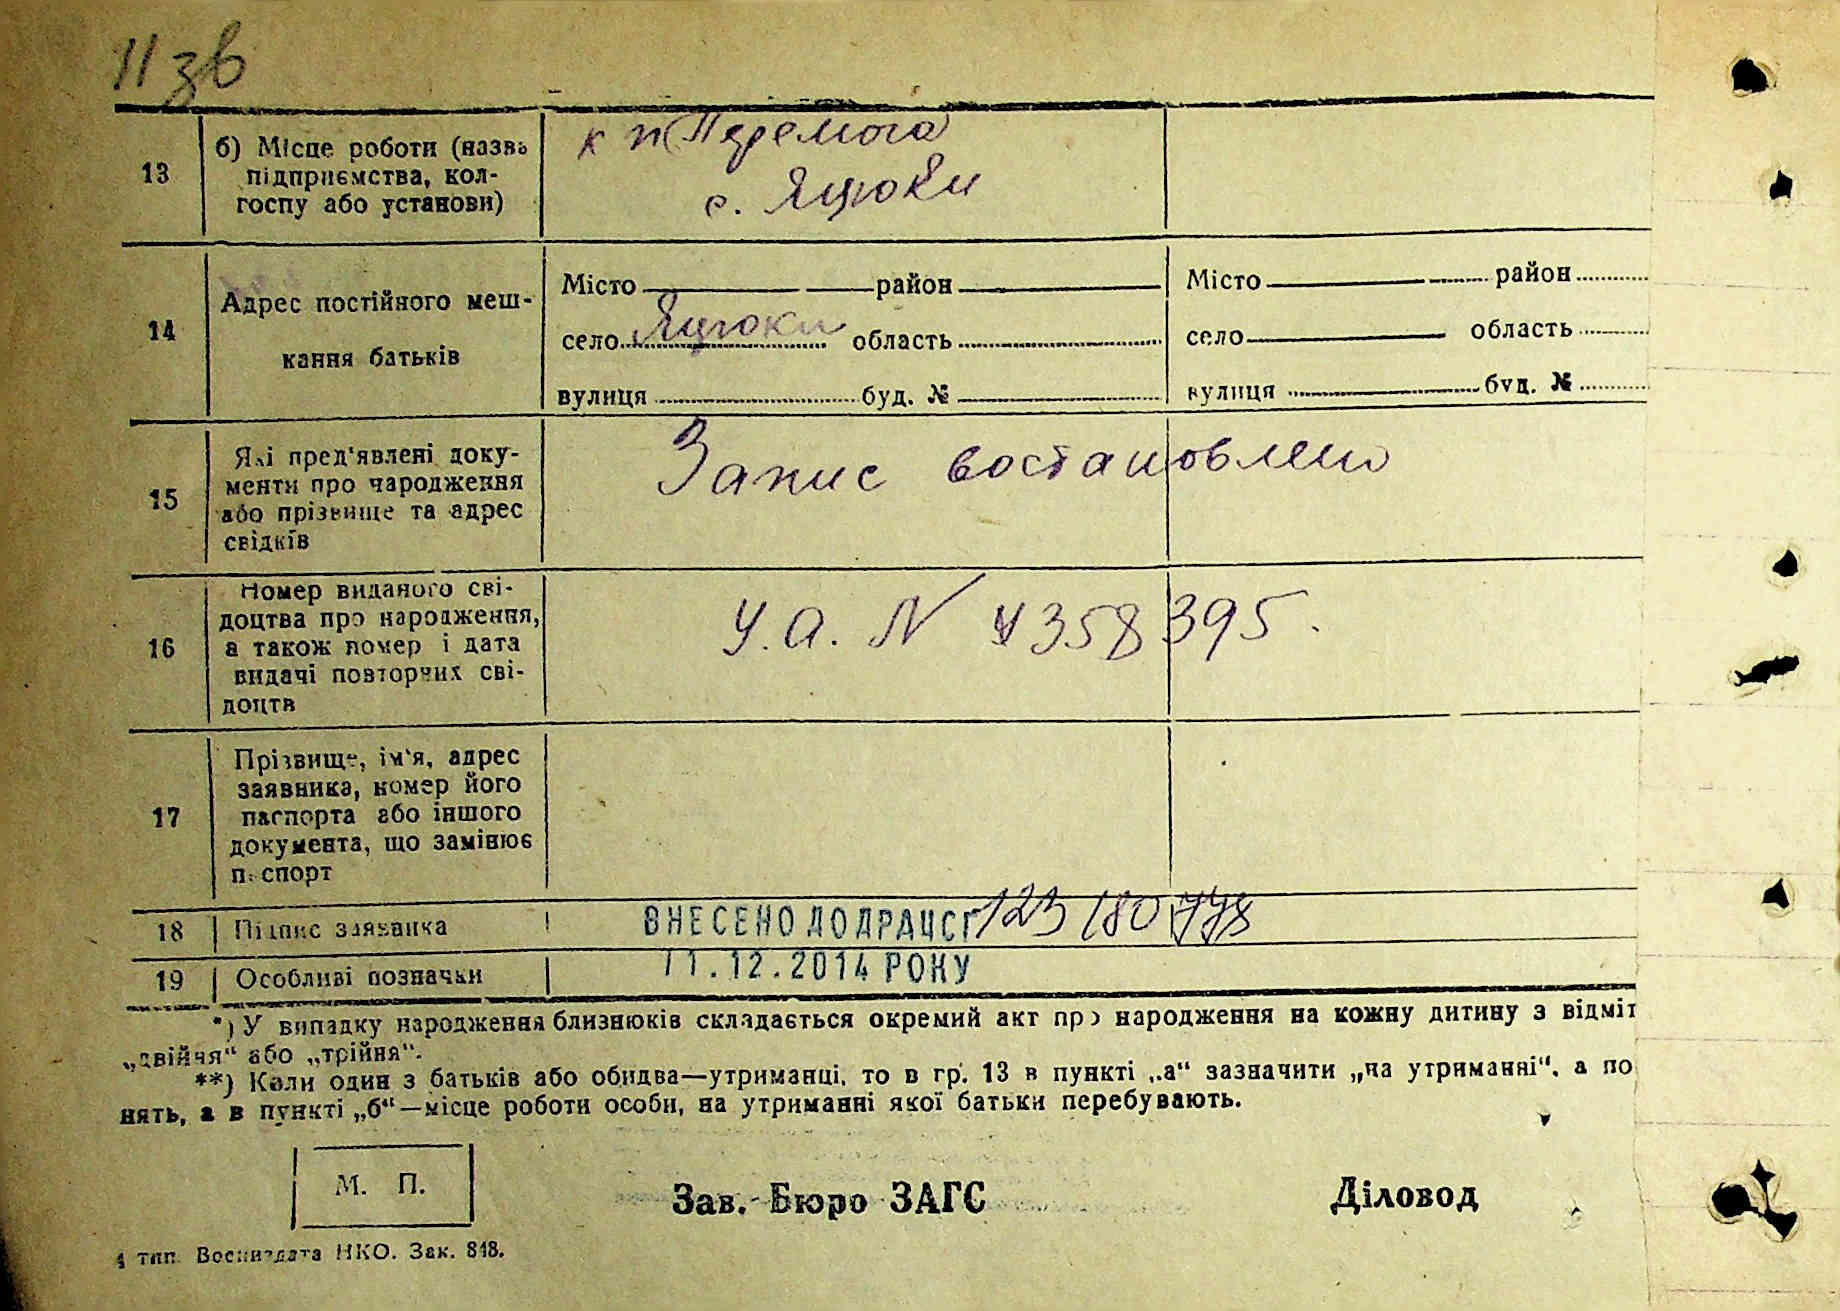 11 зв
13
б) Місце роботи (назвь
підприємства, кол-
госпу або установи)
к п Перемога
с. Яцюки
14
Адрес постійного меш-
кання батьків
Місто район
село Яцюки область
вулиця буд. №
Місто район
село область
вулиця буд. №
15
Які пред'явлені доку-
менти про народження
або прізвище та адрес
свідків
Запис востановлено
16
Номер виданого сві-
доцтва про народження,
а також номер і дата
видачі повторчих сві-
доцтв
У.А. N 4358395.
17
Прізвище, ім'я, адрес
заявника, номер його
паспорта або іншого
документа, що замінює
паспорт
18
Підпис заявника
ВНЕСЕНО ДО ДРАЦСГ 123 180 778
19
Особливі позначки
11.12.2014 РОКУ
*) У випадку народження близнюків складається окремий акт про народження на кожну дитину з відміт
„двійня“ або „трійня“.
**) Коли один з батьків або обидва—утриманці, то в гр. 13 в пункті „а“ зазначити „на утриманні“, а по
нять, а в пункті „б“—місце роботи особи, на утриманні якої батьки перебувають.
М. П.
Зав. Бюро ЗАГС
Діловод
4 тип. Воениздата НКО. Зак. 848.